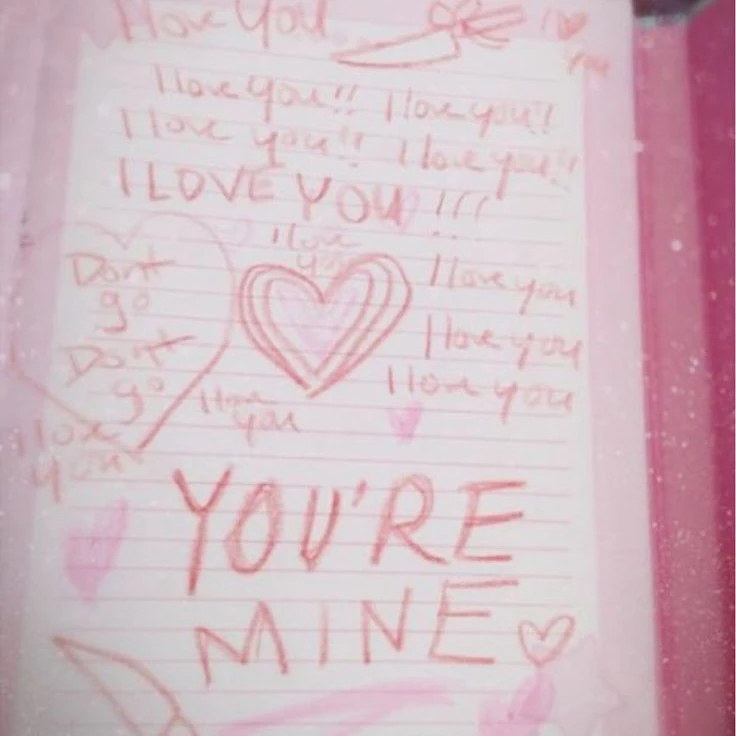 I love You
I ♡
you
I love you!! I love you!!
I love you!! I love you!!
I LOVE YOU!!!
I love
you
Dont
go
Don't
go
I love you
I love you
I love you
I love
you
I love
you
YOU'RE
MINE ♡